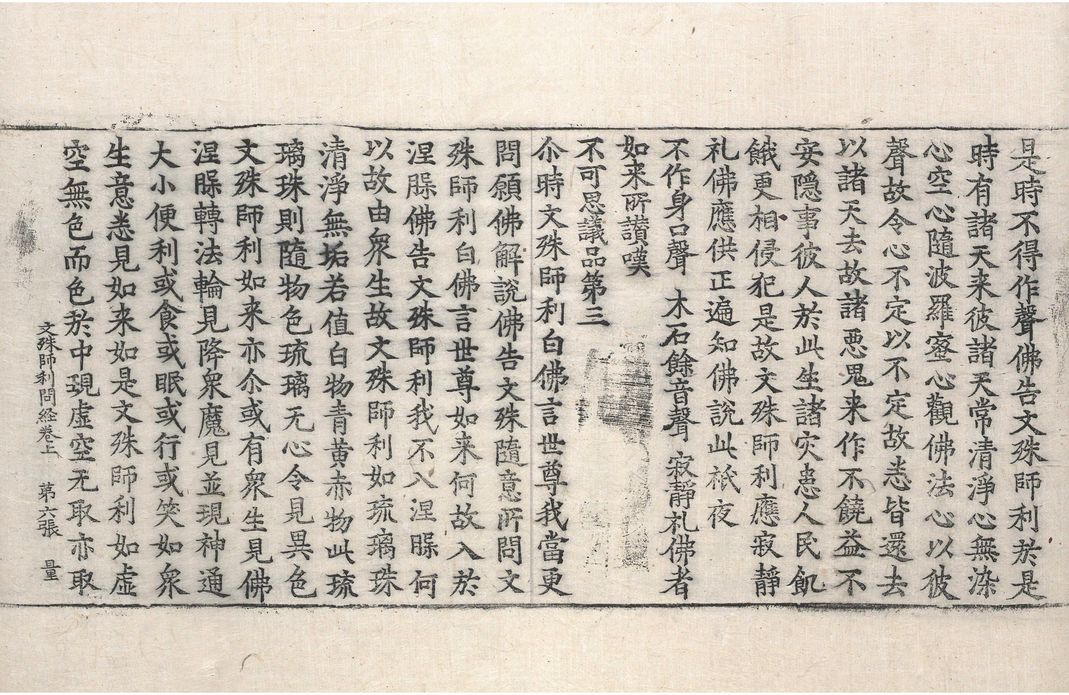 是時不得作聲佛告文殊師利於是
時有諸天来彼諸天常清淨心無染
心空心隨波羅蜜心觀佛法心以彼
聲故令心不定以不定故悉皆還去
以諸天去故諸惡鬼来作不饒益不
安隱事彼人於此生諸灾患人民飢
餓更相侵犯是故文殊師利應寂靜
礼佛應供正遍知佛說此祇夜
不作身口聲 木石餘音聲 寂靜礼佛者
如来所讃嘆
不可思議品第三
尒時文殊師利白佛言世尊我當更
問願佛解說佛告文殊隨意所問文
殊師利白佛言世尊如来何故入於
涅腂佛告文殊師利我不入涅腂何
以故由衆生故文殊師利如琉璃珠
清淨無垢若值白物青黄赤物此琉
璃珠則隨物色琉璃无心令見異色
文殊師利如来亦尒或有衆生見佛
涅腂轉法輪見降衆魔見並現神通
大小便利或食或眠或行或笑如衆
生意悉見如来如是文殊師利如虛
空無色而色於中現虛空无取亦取
文殊師利問経卷上 第六張 量